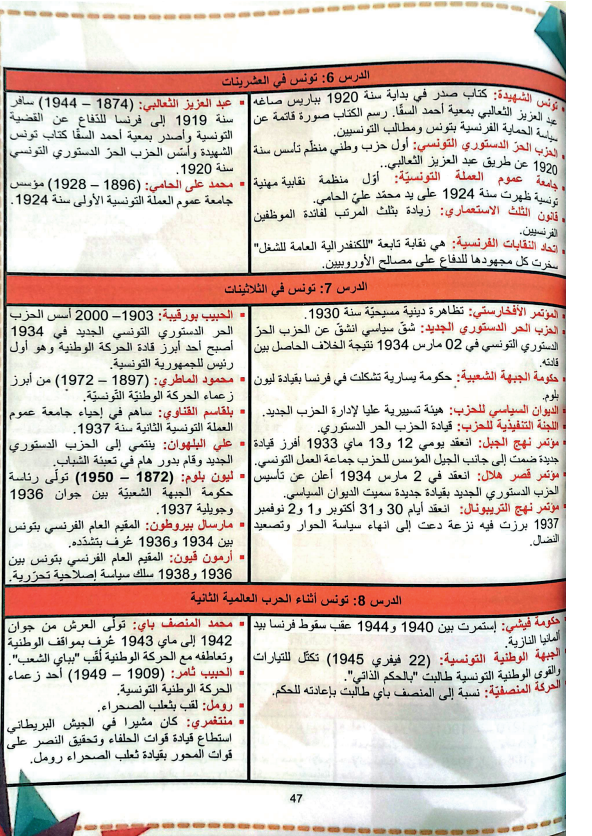 الدرس 6: تونس في العشرينات
تونس الشهيدة: كتاب صدر في بداية سنة 1920 بباريس صاغه
عبد العزيز الثعالبي بمعية أحمد السقّا. رسم الكتاب صورة قاتمة عن
سياسة الحماية الفرنسية بتونس ومطالب التونسيين.
الحزب الحرّ الدستوري التونسي: أول حزب وطني منظّم تأسس سنة
1920 عن طريق عبد العزيز الثعالبي..
جامعة عموم العملة التونسيّة: أوّل منظمة نقابية مهنية
تونسية ظهرت سنة 1924 على يد محمّد عليّ الحامي.
قانون الثلث الاستعماري: زيادة بثلث المرتب لفائدة الموظفين
الفرنسيين.
اتحاد النقابات الفرنسية: هي نقابة تابعة "للكنفدرالية العامة للشغل"
سخرت كل مجهودها للدفاع على مصالح الأوروبيين.
عبد العزيز الثعالبي: (1874 – 1944) سافر
سنة 1919 إلى فرنسا للدفاع عن القضية
التونسية وأصدر بمعية أحمد السقّا كتاب تونس
الشهيدة وأسّس الحزب الحرّ الدستوري التونسي
سنة 1920.
محمد على الحامي: (1896 – 1928) مؤسس
جامعة عموم العملة التونسية الأولى سنة 1924.
الدرس 7: تونس في الثلاثينات
المؤتمر الأفخارستي: تظاهرة دينية مسيحيّة سنة 1930.
الحزب الحر الدستوري الجديد: شقّ سياسي انشقّ عن الحزب الحرّ
الدستوري التونسي في 02 مارس 1934 نتيجة الخلاف الحاصل بين
قادته.
حكومة الجبهة الشعبية: حكومة يسارية تشكلت في فرنسا بقيادة ليون
بلوم.
الديوان السياسي للحزب: هيئة تسييرية عليا لإدارة الحزب الجديد.
اللجنة التنفيذية للحزب: قيادة الحزب الحر الدستوري.
مؤتمر نهج الجبل: انعقد يومي 12 و13 ماي 1933 أفرز قيادة
جديدة ضمت إلى جانب الجيل المؤسس للحزب جماعة العمل التونسي.
مؤتمر قصر هلال: انعقد في 2 مارس 1934 أعلن عن تأسيس
الحزب الدستوري الجديد بقيادة جديدة سميت الديوان السياسي.
مؤتمر نهج التريبونال: انعقد أيام 30 و31 أكتوبر و1 و2 نوفمبر
1937 برزت فيه نزعة دعت إلى انهاء سياسة الحوار وتصعيد
النضال.
الحبيب بورقيبة: 1903– 2000 أسس الحزب
الحر الدستوري التونسي الجديد في 1934
أصبح أحد أبرز قادة الحركة الوطنية وهو أول
رئيس للجمهورية التونسية.
محمود الماطري: (1897 – 1972) من أبرز
زعماء الحركة الوطنيّة التّونسيّة.
بلقاسم القناوي: ساهم في إحياء جامعة عموم
العملة التونسية الثانية سنة 1937.
علي البلهوان: ينتمي إلى الحزب الدستوري
الجديد وقام بدور هام في تعبئة الشباب.
ليون بلوم: (1872 – 1950) تولّى رئاسة
حكومة الجبهة الشعبيّة بين جوان 1936
وجويلية 1937.
مارسال بيروطون: المقيم العام الفرنسي بتونس
بين 1934 و1936 عُرف بتشدّده.
أرمون قيون: المقيم العام الفرنسي بتونس بين
1936 و1938 سلك سياسة إصلاحية تحرّرية.
الدرس 8: تونس أثناء الحرب العالمية الثانية
حكومة فيشي: إستمرت بين 1940 و1944 عقب سقوط فرنسا بيد
ألمانيا النازية.
الجبهة الوطنية التونسية: (22 فيفري 1945) تكتّل للتيارات
والقوى الوطنية التونسية طالبت "بالحكم الذاتي".
الحركة المنصفيّة: نسبة إلى المنصف باي طالبت بإعادته للحكم.
محمد المنصف باي: تولّى العرش من جوان
1942 إلى ماي 1943 عُرف بمواقف الوطنية
وتعاطفه مع الحركة الوطنية لُقّب "بباي الشعب".
الحبيب ثامر: (1909 – 1949) أحد زعماء
الحركة الوطنية التونسية.
رومل: لقب بثعلب الصحراء.
منتغمري: كان مشيرا في الجيش البريطاني
استطاع قيادة قوات الحلفاء وتحقيق النصر على
قوات المحور بقيادة ثعلب الصحراء رومل.
47